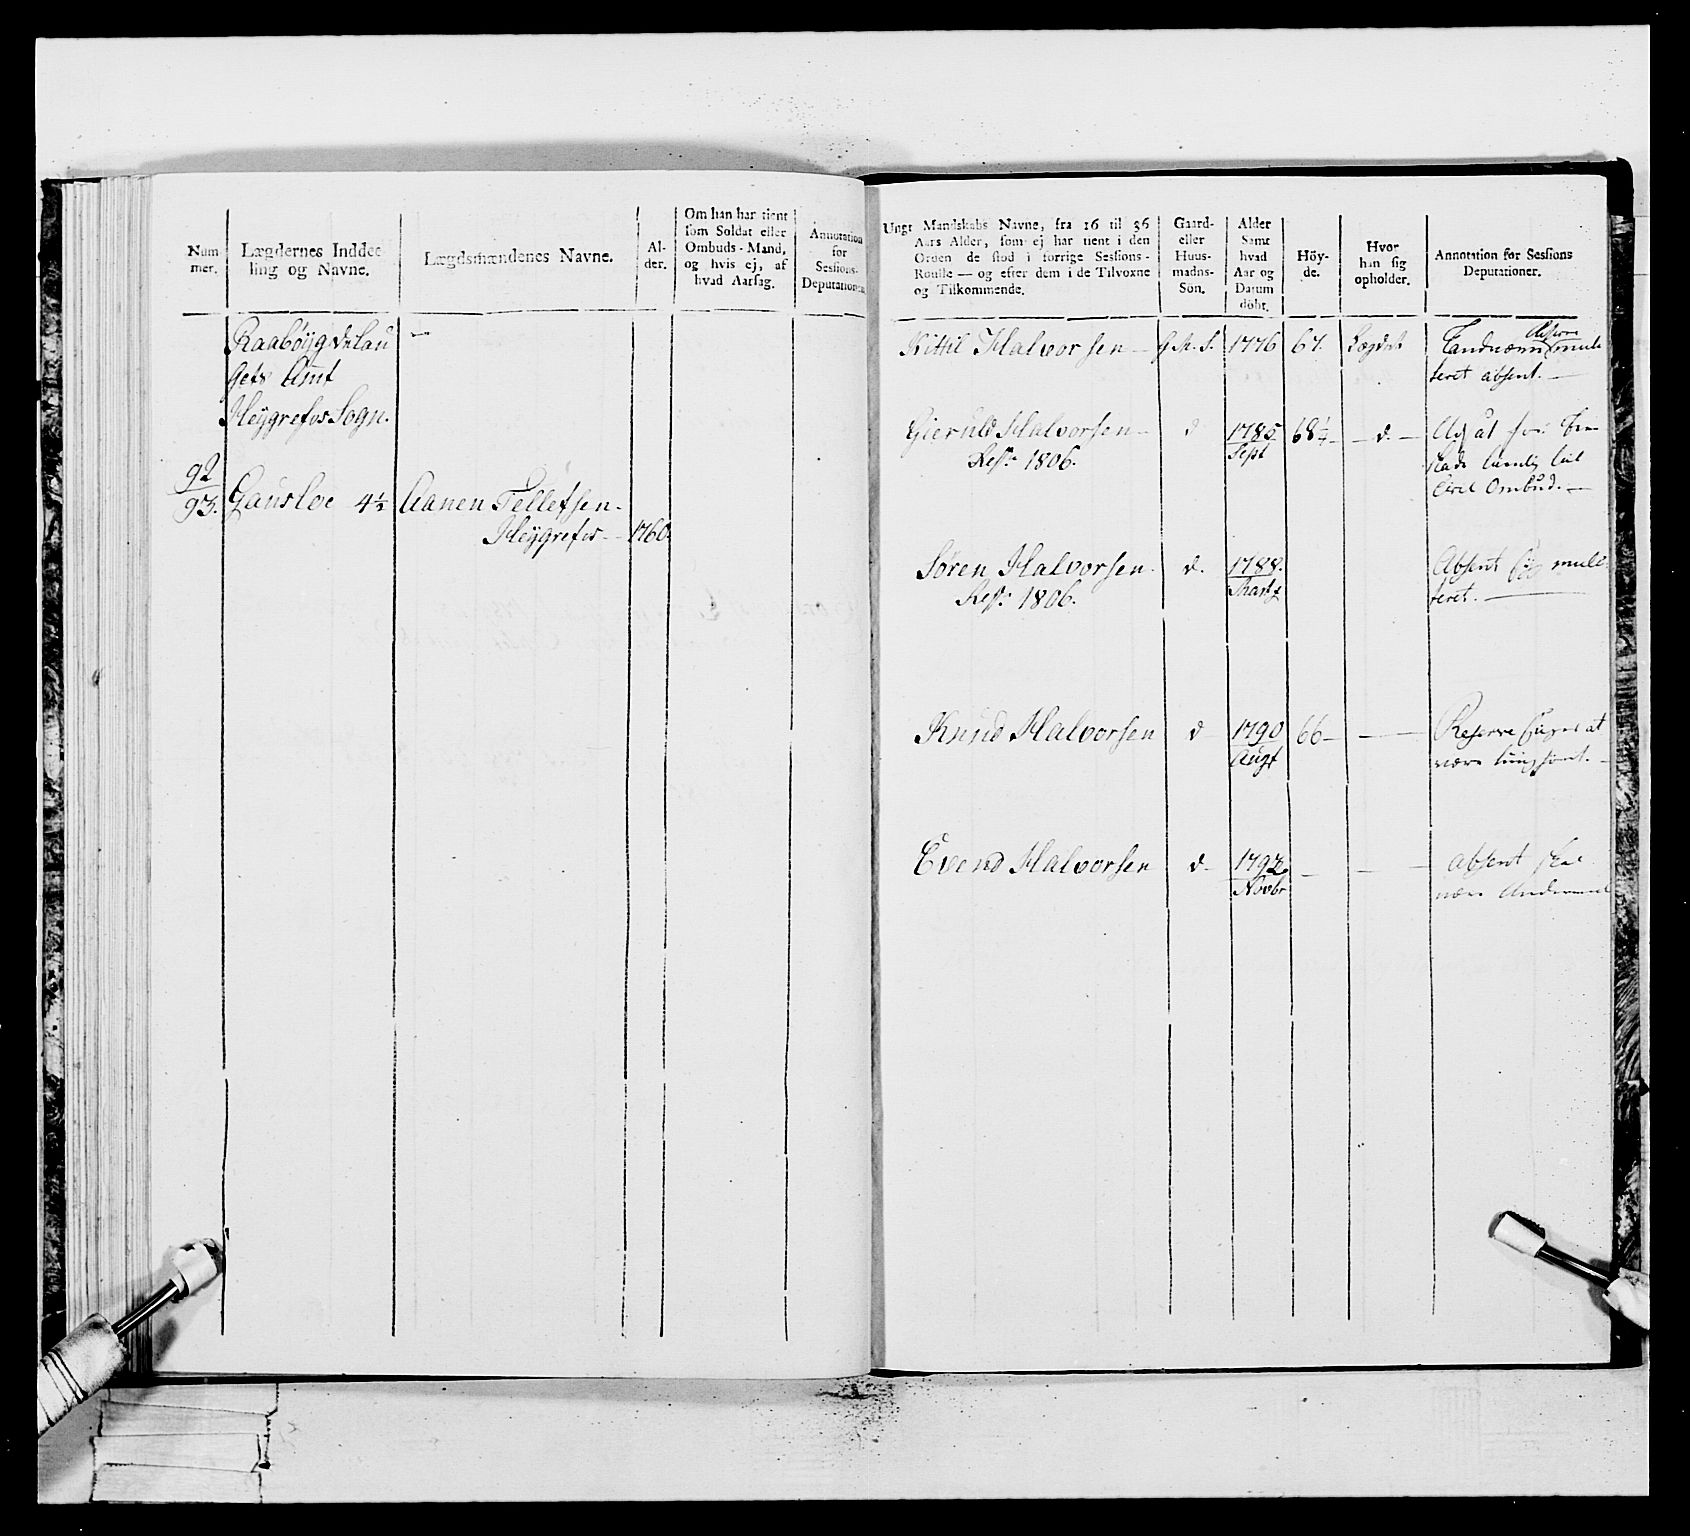 Num
mer.
Lægdernes Inddee
ling og Navne.
Lægdsmændenes Navne.
Al-
der.
Om han har tient
som Soldat eller
Ombuds-Mand,
og hvis ej, af
hvad Aarsag.
Annotation
for
Sessions-
Deputationen
Raabøygdelau
gets Amt
Heygrefos Sogn.
92
93. Gausloe 4½ Aanen Tellefsen.
Heygrefos 1760.
Ungt Mandskabs Navne, fra 16 til 36
Aars Alder, som ej har tient i den
Orden de stod i forrige Sessions-
Roulle — og efter dem i de Tilvoxne
og Tilkommende.
Gaard-
eller
Huus-
madns-
Sön.
Alder
Samt
hvad
Aar og
Datum
döbt.
Höy-
de.
Hvor
han sig
opholder.
Annotation for Sessions
Deputationer.
Kittil Halvorsen — G.M.S. 1776 67. Lægdet
teret absent. —
Gieruld Halvorsen — d 1785 68¼ — d. —
Resv. 1806. Sept
Civil Ombud. —
Søren Halvorsen. d. 1788. Absent mulc
Resv. 1806. Martz teret. —
Knud Halvorsen d 1790 66 — — Reserve at
Augt være
Evend Halvorsen d 1792 — — absent skal
Novbr være